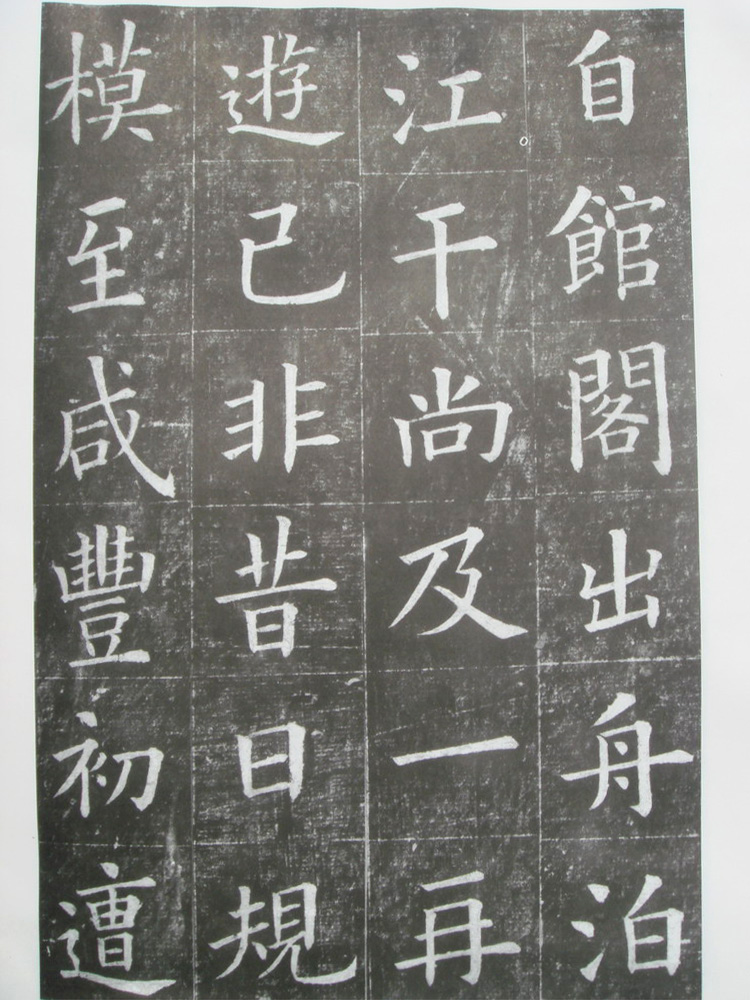 自館閣出舟泊
江干尚及一再
遊已非昔日規
模至咸豐初遭